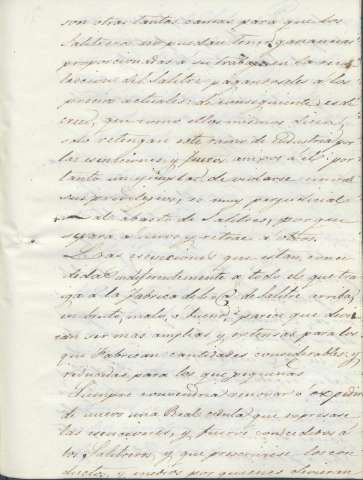 son otras tantas causas para que los
Salitreros no puedan tener ganancias
proporcionadas a su trabajo en la
leccion del Salitre pagandoseles a los
precios actuales: de consiguiente es de
creer, que como ellos mismos dicen,
solo retengan este ramo de industria por
las esenciones, y fueros anexos a él: por
tanto
sus privilegios, es muy perjudicial
al abasto de Salitres, porque
a otros.
Las esenciones que estan conce
didas indistintamente a todo el que tra
ga a la fabrica de Salitre arriba,
malo, o bueno, parece que devi
an ser mas amplias, y extensas para los
que Fabrican cantidades considerables, y
reducidas para los que pequeñas
Siempre convendria renovar ó expedir
de nuevo una Real cedula que expresase
las esenciones, y fueros concedidos á
los Salitreros, y que previniese los con
ductos, y medios por quienes devieran